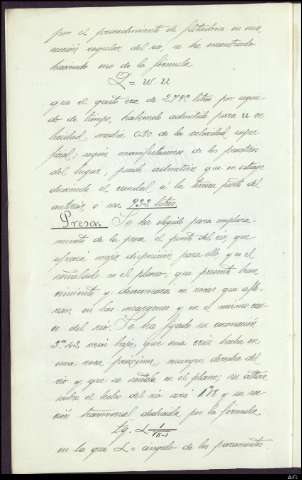 por el procedimiento de flotadores en una
sección regular del río, se ha encontrado
haciendo uso de la fórmula
Q = w. u
que el gasto era de 2795 litros por segun-
do de tiempo, habiendo admitido para u ve-
locidad, media 0,80 de la velocidad super-
ficial; según manifestaciones de los prácticos
del lugar, puede admitirse que en estiaje
desciende el caudal á la tercera parte del
anterior, ó sea 932 litros.
Presa. Se ha elegido para emplaza-
miento de la presa el punto del río, que
ofrecía mejor disposición para ello, y es el
señalado en el plano, que presenta buen
cimiento y descansará en rocas que aflo-
ran en las márgenes y en el mismo cau-
ce del río. Se ha fijado su coronación
más baja, que una cruz hecha en
una roca próxima, margen derecha del
río y que se señala en el plano; su altura
sobre el lecho del río será y su sec-
ción transversal deducida por la fórmula
tg. α
en la que α = ángulo de los paramentos